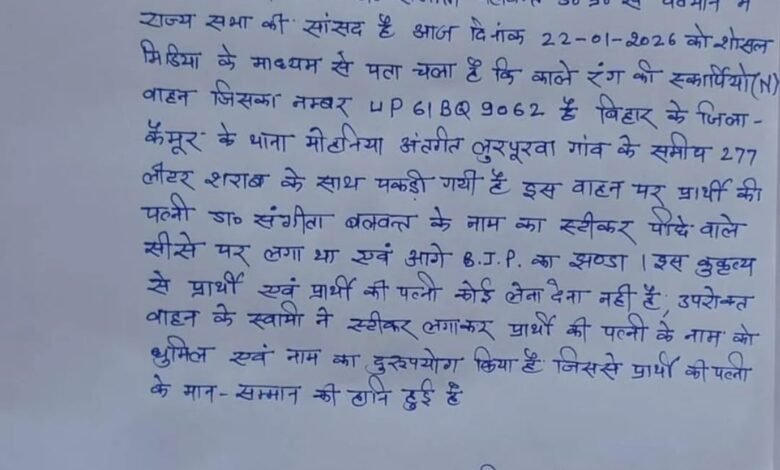 राज्य सभा की सांसद है आज दिनांक 22-01-2026 को शोसल
मिडिया के माध्यम से पता चला है कि काले रंग की स्कार्पियो(N)
वाहन जिसका नम्बर UP61BQ9062 है बिहार के जिला-
कैमूर के थाना मोहनिया अंतर्गत लुरपूरवा गांव के समीप 277
लीटर शराब के साथ पकड़ी गयी है इस वाहन पर प्रार्थी की
पत्नी डा० संगीता बलवन्त के नाम का स्टीकर पीछे वाले
सीसे पर लगा था एवं आगे B.J.P. का झण्डा । इस कुकृत्य
से प्रार्थी एवं प्रार्थी की पत्नी कोई लेना देना नही है, उपरोक्त
वाहन के स्वामी ने स्टीकर लगाकर प्रार्थी की पत्नी के नाम को
धुमिल एवं नाम का दुरूपयोग किया है जिससे प्रार्थी की पत्नी
के मान-सम्मान की हानि हुई है